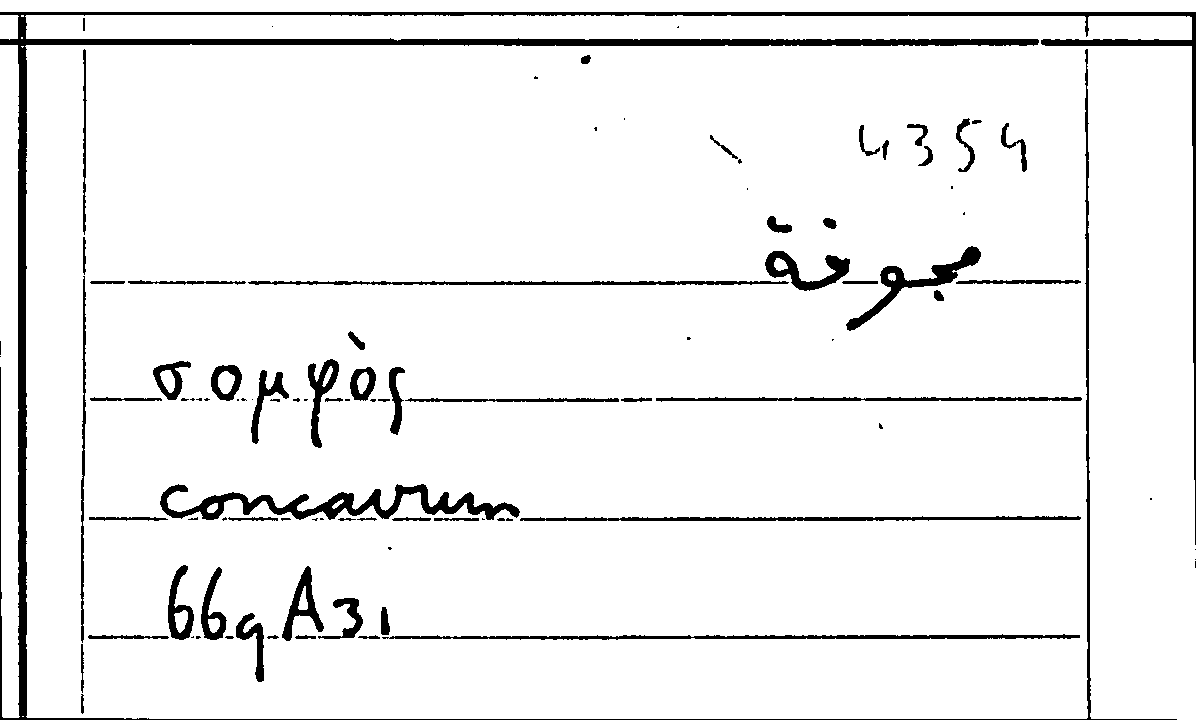 4354
مجوفة
σομφὸς
concavum
669A31